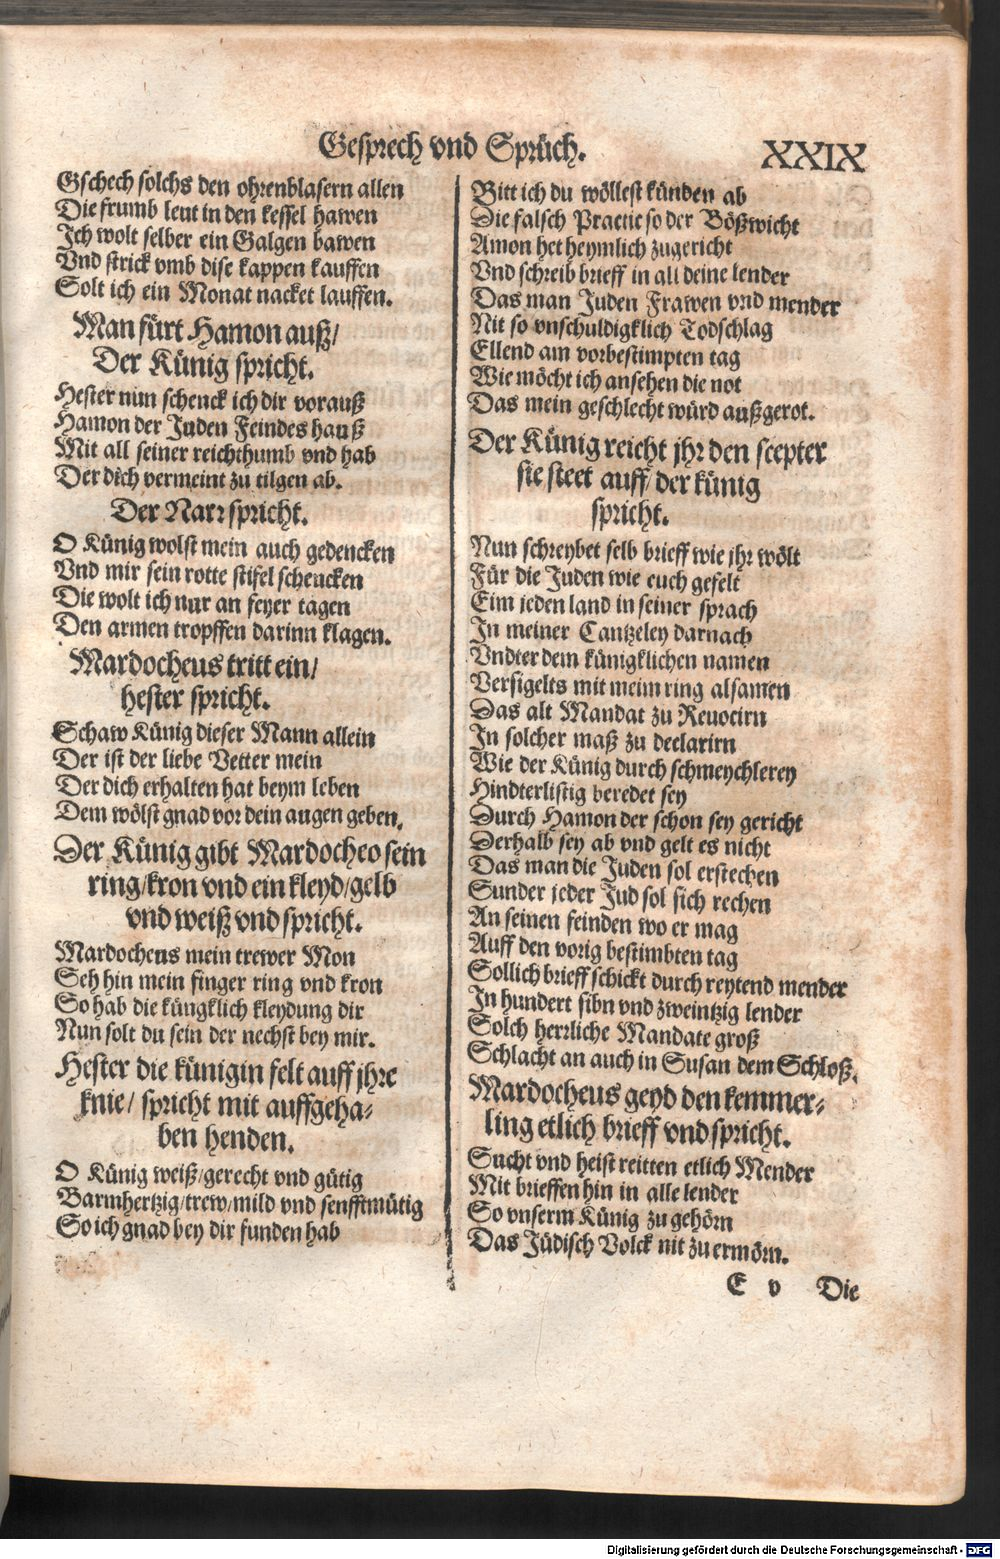 Gesprech vnd Sprüch.
XXIX
Gschech solchs den ohrenblasern allen
Die frumb leut in den kessel hawen
Ich wolt selber ein Galgen bawen
Vnd strick vmb dise kappen kauffen
Solt ich ein Monat nacket lauffen.
Man fürt Hamon auß/
Der Künig spricht.
Hester nun schenck ich dir vorauß
Hamon der Juden Feindes hauß
Mit all seiner reichthumb vnd hab
Der dich vermeint zu tilgen ab.
Der Narr spricht.
O Künig wolst mein auch gedencken
Vnd mir sein rotte stifel schencken
Die wolt ich nur an feyer tagen
Den armen tropffen darinn klagen.
Mardocheus tritt ein/
hester spricht.
Schaw Künig dieser Mann allein
Der ist der liebe Vetter mein
Der dich erhalten hat beym leben
Dem wölst gnad vor dein augen geben.
Der Künig gibt Mardocheo sein
ring/kron vnd ein kleyd/gelb
vnd weiß vnd spricht.
Mardocheus mein trewer Mon
Seh hin mein finger ring vnd kron
So hab die küngklich kleydung dir
Nun solt du sein der nechst bey mir.
Hester die künigin felt auff jhre
knie/ spricht mit auffgeha-
ben henden.
O Künig weiß/gerecht vnd gütig
Barmhertzig/trew/mild vnd senfftmütig
So ich gnad bey dir funden hab
Bitt ich du wöllest künden ab
Die falsch Practic so der Bößwicht
Amon het heymlich zugericht
Vnd schreib brieff in all deine lender
Das man Juden Frawen vnd mender
Nit so vnschuldigklich Todschlag
Ellend am vorbestimpten tag
Wie möcht ich ansehen die not
Das mein geschlecht würd außgerot.
Der Künig reicht jhr den scepter
sie steet auff/ der künig
spricht.
Nun schreybet selb brieff wie jhr wölt
Für die Juden wie euch gefelt
Eim jeden land in seiner sprach
In meiner Cantzeley darnach
Vndter dem künigklichen namen
Versigelts mit meim ring alsamen
Das alt Mandat zu Reuocirn
In solcher maß zu declarirn
Wie der Künig durch schmeychlerey
Hindterlistig beredet sey
Durch Hamon der schon sey gericht
Derhalb sey ab vnd gelt es nicht
Das man die Juden sol erstechen
Sunder jeder Jud sol sich rechen
An seinen feinden wo er mag
Auff den vorig bestimbten tag
Sollich brieff schickt durch reytend mender
In hundert sibn vnd zweintzig lender
Solch herrliche Mandate groß
Schlacht an auch in Susan dem Schloß.
Mardocheus geyd den kemmer-
ling etlich brieff vnd spricht.
Sucht vnd heist reitten etlich Mender
Mit brieffen hin in alle lender
So vnserm Künig zu gehörn
Das Jüdisch Volck nit zu ermörn.
E v Die
Digitalisierung gefördert durch die Deutsche Forschungsgemeinschaft - DFG